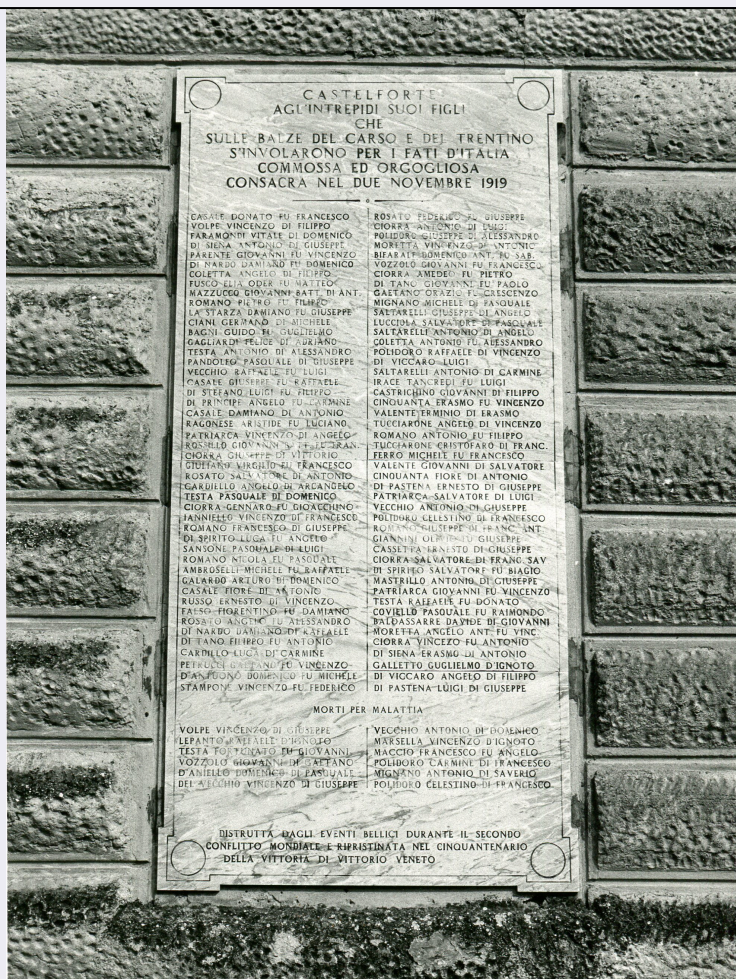 CASTELFORTE
AGL'INTREPIDI SUOI FIGLI
CHE
SULLE BALZE DEL CARSO E DEL TRENTINO
S'INVOLARONO PER I FATI D'ITALIA
COMMOSSA ED ORGOGLIOSA
CONSACRA NEL DUE NOVEMBRE 1919
CASALE DONATO FU FRANCESCO
VOLPE VINCENZO DI FILIPPO
FARAMONDI VITALE DI DOMENICO
DI SIENA ANTONIO DI GIUSEPPE
PARENTE GIOVANNI FU VINCENZO
DI NARDO DAMIANO FU DOMENICO
COLETTA ANGELO DI FILIPPO
FUSCO ELIA ODER FU MATTEO
MAZZUCCO GIOVANNI BATT. DI ANT.
ROMANO PIETRO FU FILIPPO
LA STARZA DAMIANO FU GIUSEPPE
CIANI GERMANO DI MICHELE
BAGNI GUIDO FU GUGLIELMO
GAGLIARDI FELICE DI ADRIANO
TESTA ANTONIO DI ALESSANDRO
PANDOLFO PASQUALE DI GIUSEPPE
VECCHIO RAFFAELE FU LUIGI
CASALE GIUSEPPE FU RAFFAELE
DI STEFANO LUIGI FU FILIPPO
DI PRINCIPE ANGELO FU CARMINE
CASALE DAMIANO DI ANTONIO
RAGONESE ARISTIDE FU LUCIANO
PATRIARCA VINCENZO DI ANGELO
ROSSILLO GIOVANNI FRAN.
CIORRA GIUSEPPE DI VITTORIO
GIULIANO VIRGILIO FU FRANCESCO
ROSATO SALVATORE DI ANTONIO
CARDILLO ANGELO DI ARCANGELO
TESTA PASQUALE DI DOMENICO
CIORRA GENNARO FU GIOACCHINO
IANNIELLO VINCENZO DI FRANCESCO
ROMANO FRANCESCO DI GIUSEPPE
DI SPIRITO LUCA FU ANGELO
SANSONE PASQUALE DI LUIGI
ROMANO NICOLA FU PASQUALE
AMBROSELLI MICHELE FU RAFFAELE
GALARDO ARTURO DI DOMENICO
CASALE FIORE DI ANTONIO
RUSSO ERNESTO DI VINCENZO
FALSO FIORENTINO FU DAMIANO
ROSATO ANGELO FU ALESSANDRO
DI NARDO DAMIANO DI RAFFAELE
DI TANO FILIPPO FU ANTONIO
CARDILLO LUCA DI CARMINE
PETRUCCI GAETANO FU VINCENZO
D'ANTUONO DOMENICO FU MICHELE
STAMPONE VINCENZO FU FEDERICO
ROSATO FEDERICO FU GIUSEPPE
CIORRA ANTONIO DI LUIGI
POLIDORO GIUSEPPE DI ALESSANDRO
MORETTA VINCENZO DI ANTONIO
BIFARALE DOMENICO ANT. FU SAB.
VOZZOLO GIOVANNI FU FRANCESCO
CIORRA AMEDEO FU PIETRO
DI TANO GIOVANNI FU PAOLO
GAETANO ORAZIO FU CRESCENZO
MIGNANO MICHELE DI PASQUALE
SALTARELLI GIUSEPPE DI ANGELO
LUCCIOLA SALVATORE DI PASQUALE
SALTARELLI ANTONIO DI ANGELO
COLETTA ANTONIO FU ALESSANDRO
POLIDORO RAFFAELE DI VINCENZO
DI VICCARO LUIGI
SALTARELLI ANTONIO DI CARMINE
IRACE TANCREDI FU LUIGI
CASTRICHINO GIOVANNI DI FILIPPO
CINQUANTA ERASMO FU VINCENZO
VALENTE ERMINIO DI ERASMO
TUCCIARONE ANGELO DI VINCENZO
ROMANO ANTONIO FU FILIPPO
TUCCIARONE CRISTOFARO DI FRANC.
FERRO MICHELE FU FRANCESCO
VALENTE GIOVANNI DI SALVATORE
CINQUANTA FIORE DI ANTONIO
DI PASTENA ERNESTO DI GIUSEPPE
PATRIARCA SALVATORE DI LUIGI
VECCHIO ANTONIO DI GIUSEPPE
POLIDORO CELESTINO DI FRANCESCO
ROMANO GIUSEPPE DI FRANC. ANT.
GIANNINI FU GIUSEPPE
CASSETTA ERNESTO DI GIUSEPPE
CIORRA SALVATORE DI FRANC. SAV
DI SPIRITO SALVATORE FU BIAGIO
MASTRILLO ANTONIO DI GIUSEPPE
PATRIARCA GIOVANNI FU VINCENZO
TESTA RAFFAELE FU DONATO
COVIELLO PASQUALE FU RAIMONDO
BALDASSARRE DAVIDE DI GIOVANNI
MORETTA ANGELO ANT. FU VINC
CIORRA VINCEZO FU ANTONIO
DI SIENA ERASMO DI ANTONIO
GALLETTO GUGLIELMO D'IGNOTO
DI VICCARO ANGELO DI FILIPPO
DI PASTENA LUIGI DI GIUSEPPE
MORTI PER MALATTIA
VOLPE VINCENZO DI GIUSEPPE
LEPANTO RAFFAELE D'IGNOTO
TESTA FORTUNATO FU GIOVANNI
VOZZOLO GIOVANNI DI GAETANO
D'ANIELLO DOMENICO DI PASQUALE
DEL VECCHIO VINCENZO DI GIUSEPPE
VECCHIO ANTONIO DI DOMENICO
MARSELLA VINCENZO D'IGNOTO
MACCIO FRANCESCO FU ANGELO
POLIDORO CARMINE DI FRANCESCO
MIGNANO ANTONIO DI SAVERIO
POLIDORO CELESTINO DI FRANCESCO
DISTRUTTA DAGLI EVENTI BELLICI DURANTE IL SECONDO
CONFLITTO MONDIALE E RIPRISTINATA NEL CINQUANTENARIO
DELLA VITTORIA DI VITTORIO VENETO